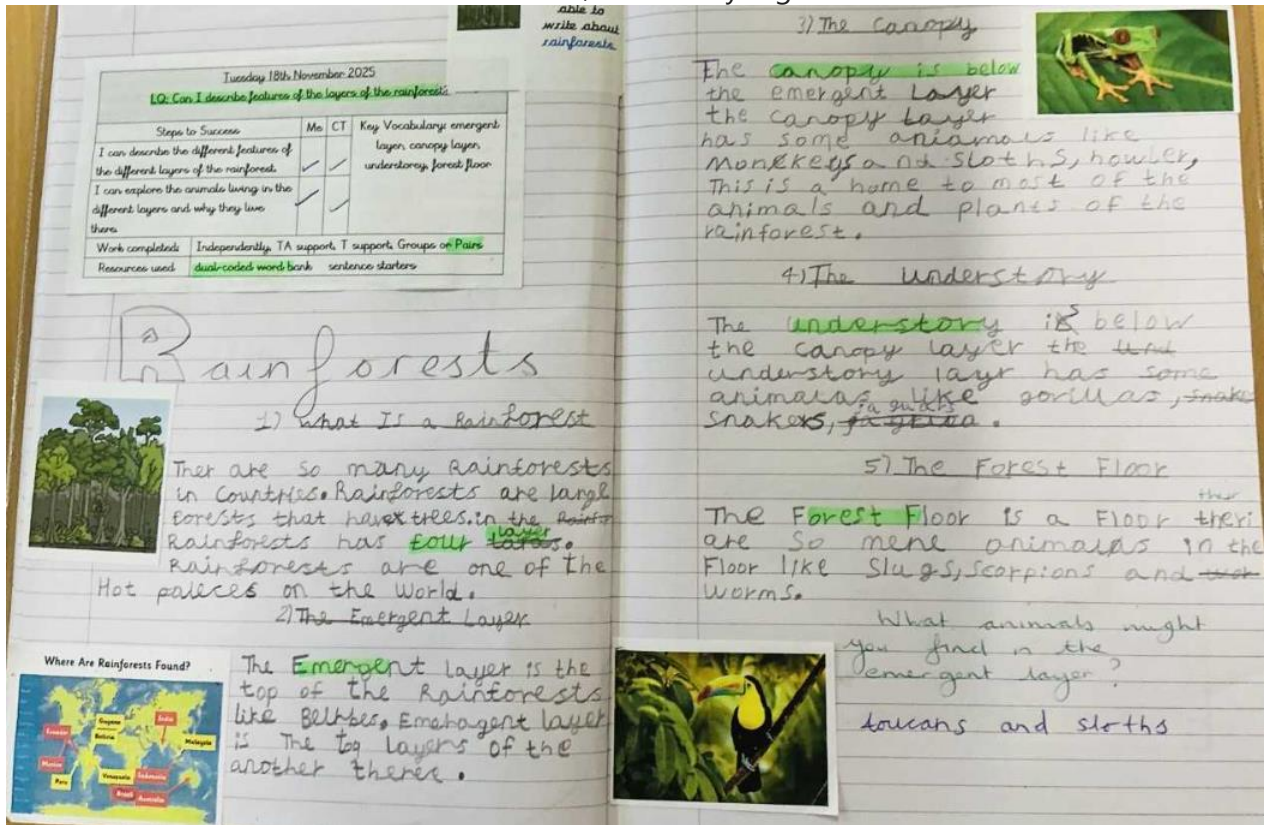 able to
write about
rainforests
Tuesday 18th November 2025
LQ: Can I describe features of the layers of the rainforests
Steps to Success Me CT Key Vocabulary: emergent layer, canopy layer, understorey, forest floor
I can describe the different features of
the different layers of the rainforest.
I can explore the animals living in the
different layers and why they live
there.
Work completed: Independently, TA support, T support, Groups or Pairs
Resources used dual-coded word bank sentence starters
Rainforests
1) What Is a Rainforest
Ther are so many Rainforests
in Countries. Rainforests are large
forests that have trees. in the
Rainforests has four layer.
Rainforests are one of the
Hot paleces on the World.
2) The Emergent Layer
Where Are Rainforests Found?
Guyana
India
Ecuador
Bolivia
Malaysia
Mexico
Peru
Venezuela
Indonesia
Brazil
Australia
The Emergent Layer is the
top of the Rainforests
like Emehagent layer
is The top layers of the
another theree.
3) The Canopy
The canopy is below
the emergent Layer
the canopy Layer
has some aniamals like
Monekeys and sloths, howler,
This is a home to most of the
animals and plants of the
rainforest.
4) The Understory
The understory is below
the canopy layer the und
understory layr has some
animalas like gorillas, snake
snakers, jaguars.
5) The Forest Floor
The Forest Floor is a Floor theri
ther
are so mene animalas in the
Floor like Slugs, Scorpions and wor
worms.
What animals might
you find in the
emergent layer?
toucans and sloths